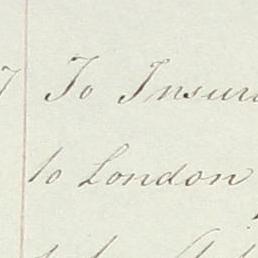 7 To Insur
to London